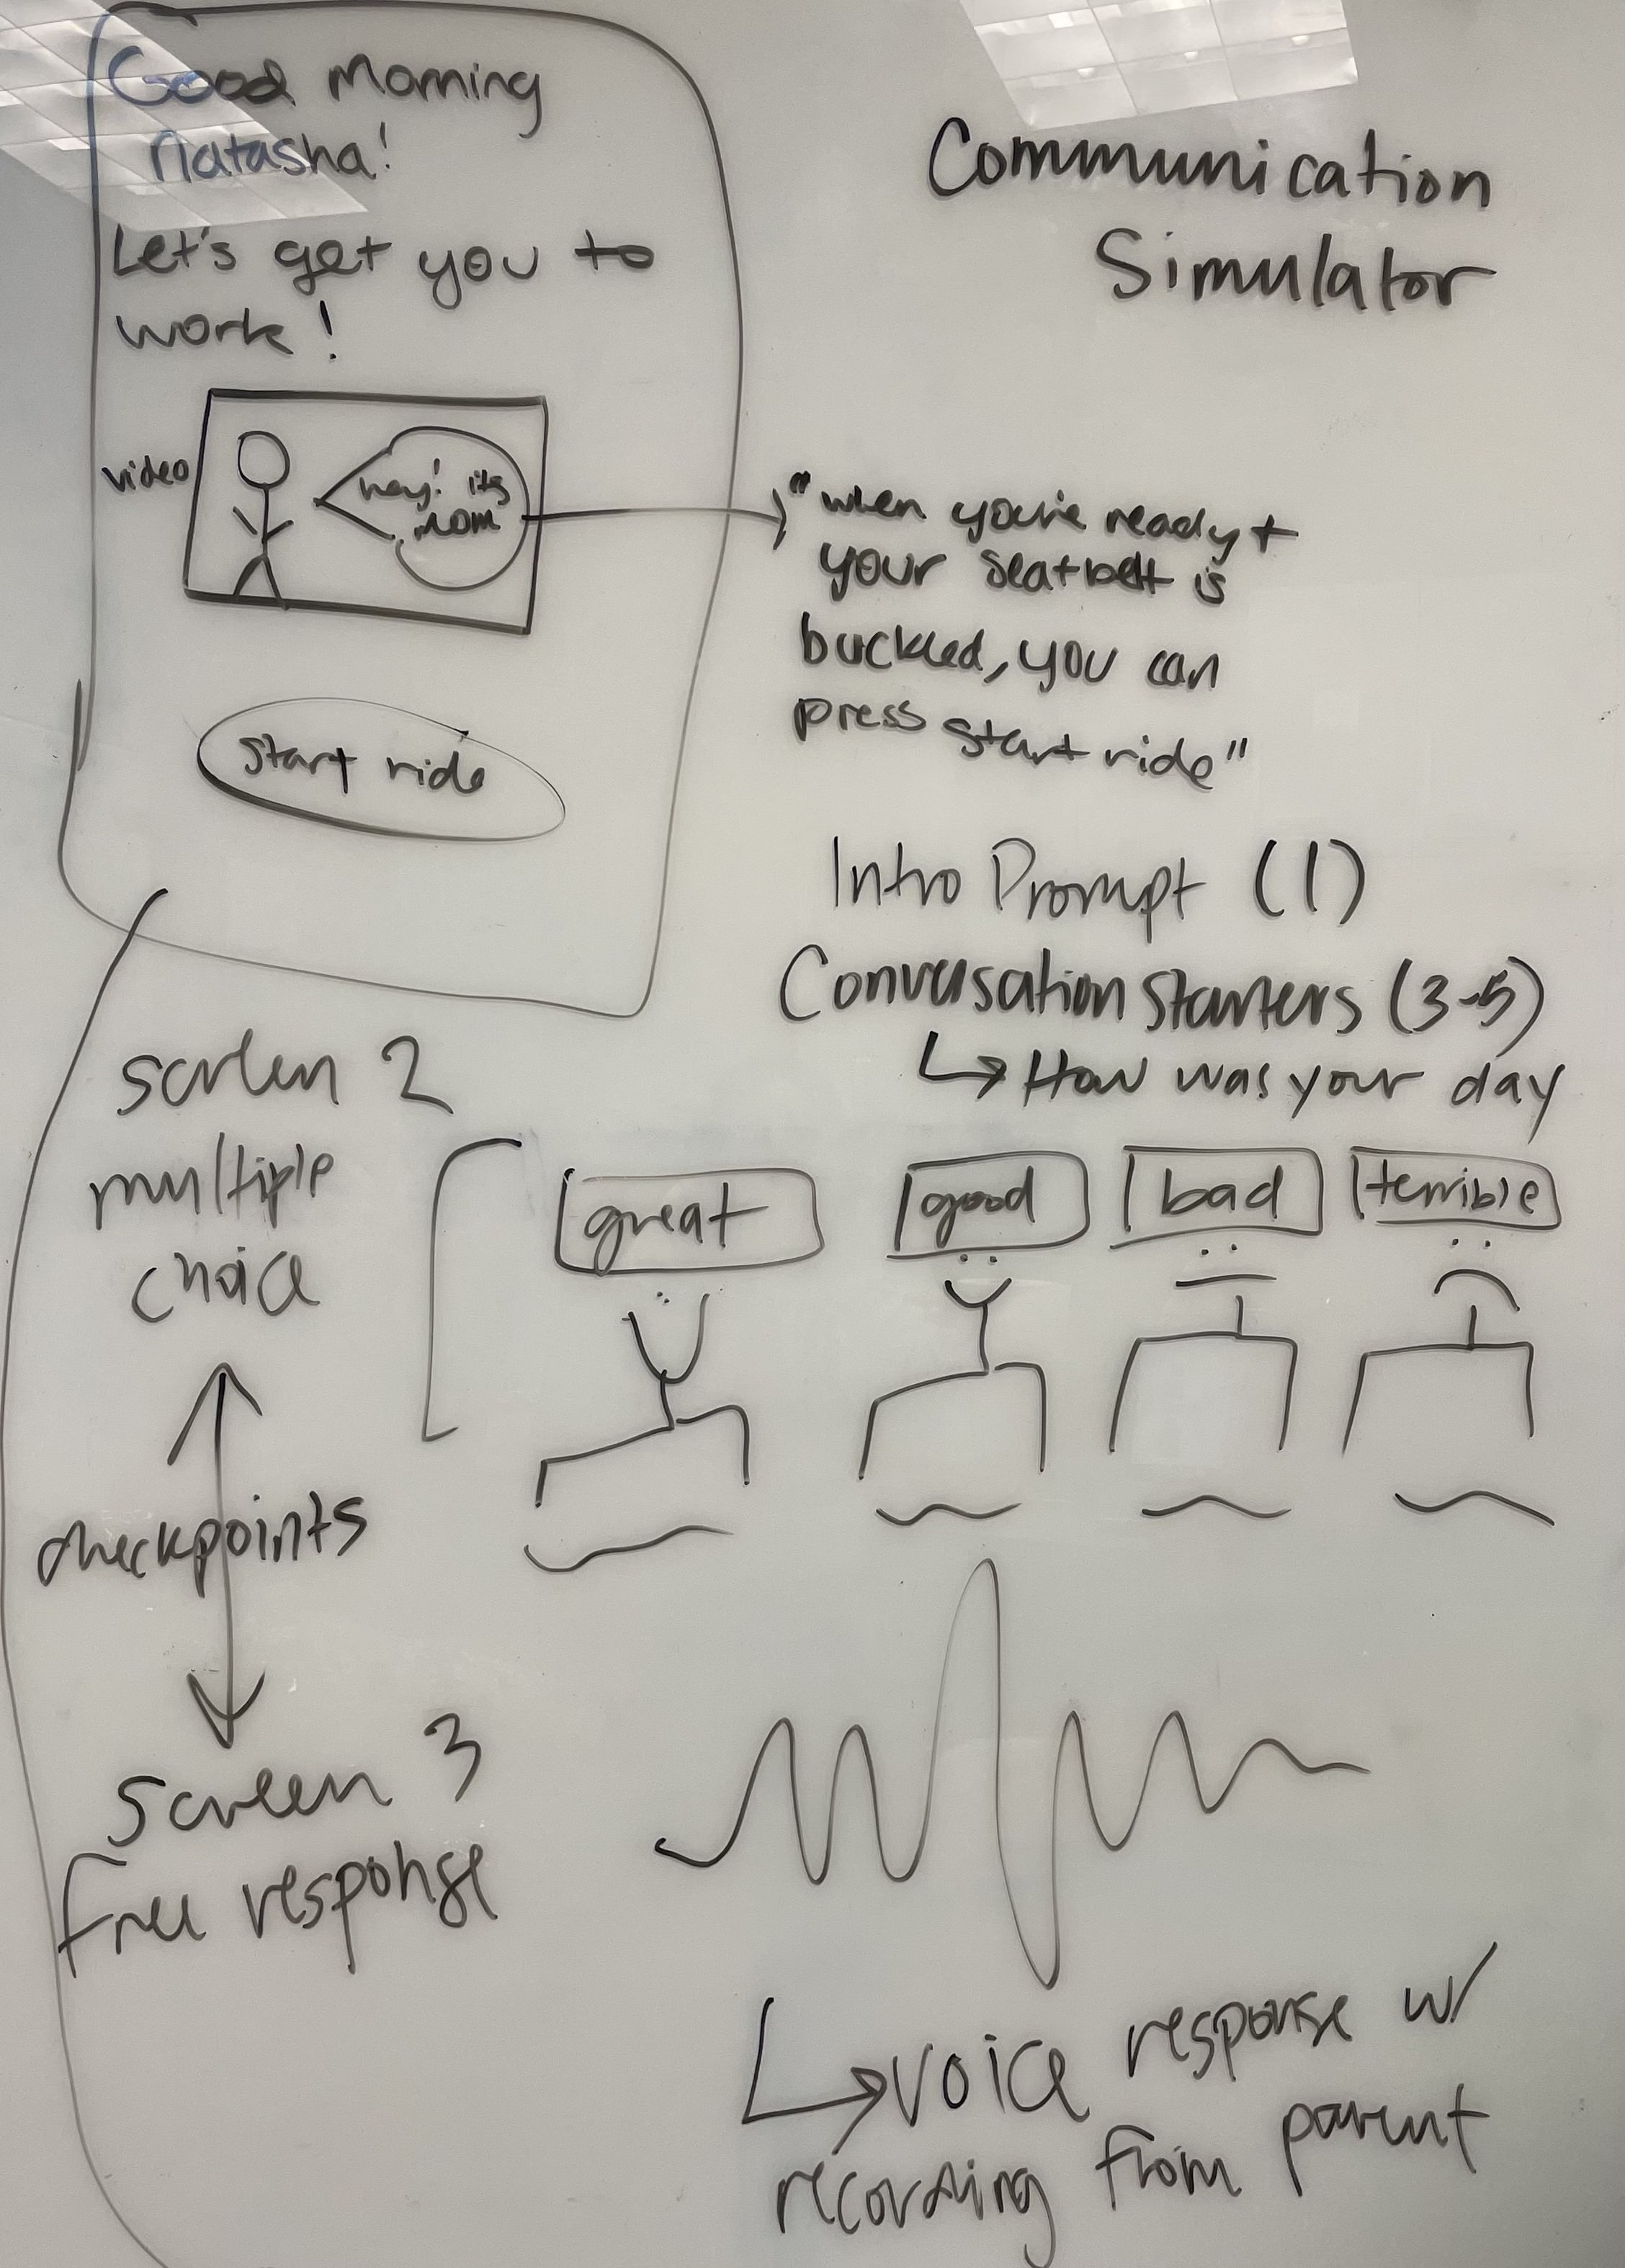 Good Morning
Natasha!
Let's get you to
work!
video
hey! its
mom
Communication
Simulator
"when you're ready +
your seatbelt is
buckled, you can
press start ride"
start ride
Intro Prompt (1)
Conversation starters (3-5)
How was your day
screen 2
multiple
choice
great
good
bad
terrible
checkpoints
screen 3
free response
voice response w/
recording from parent